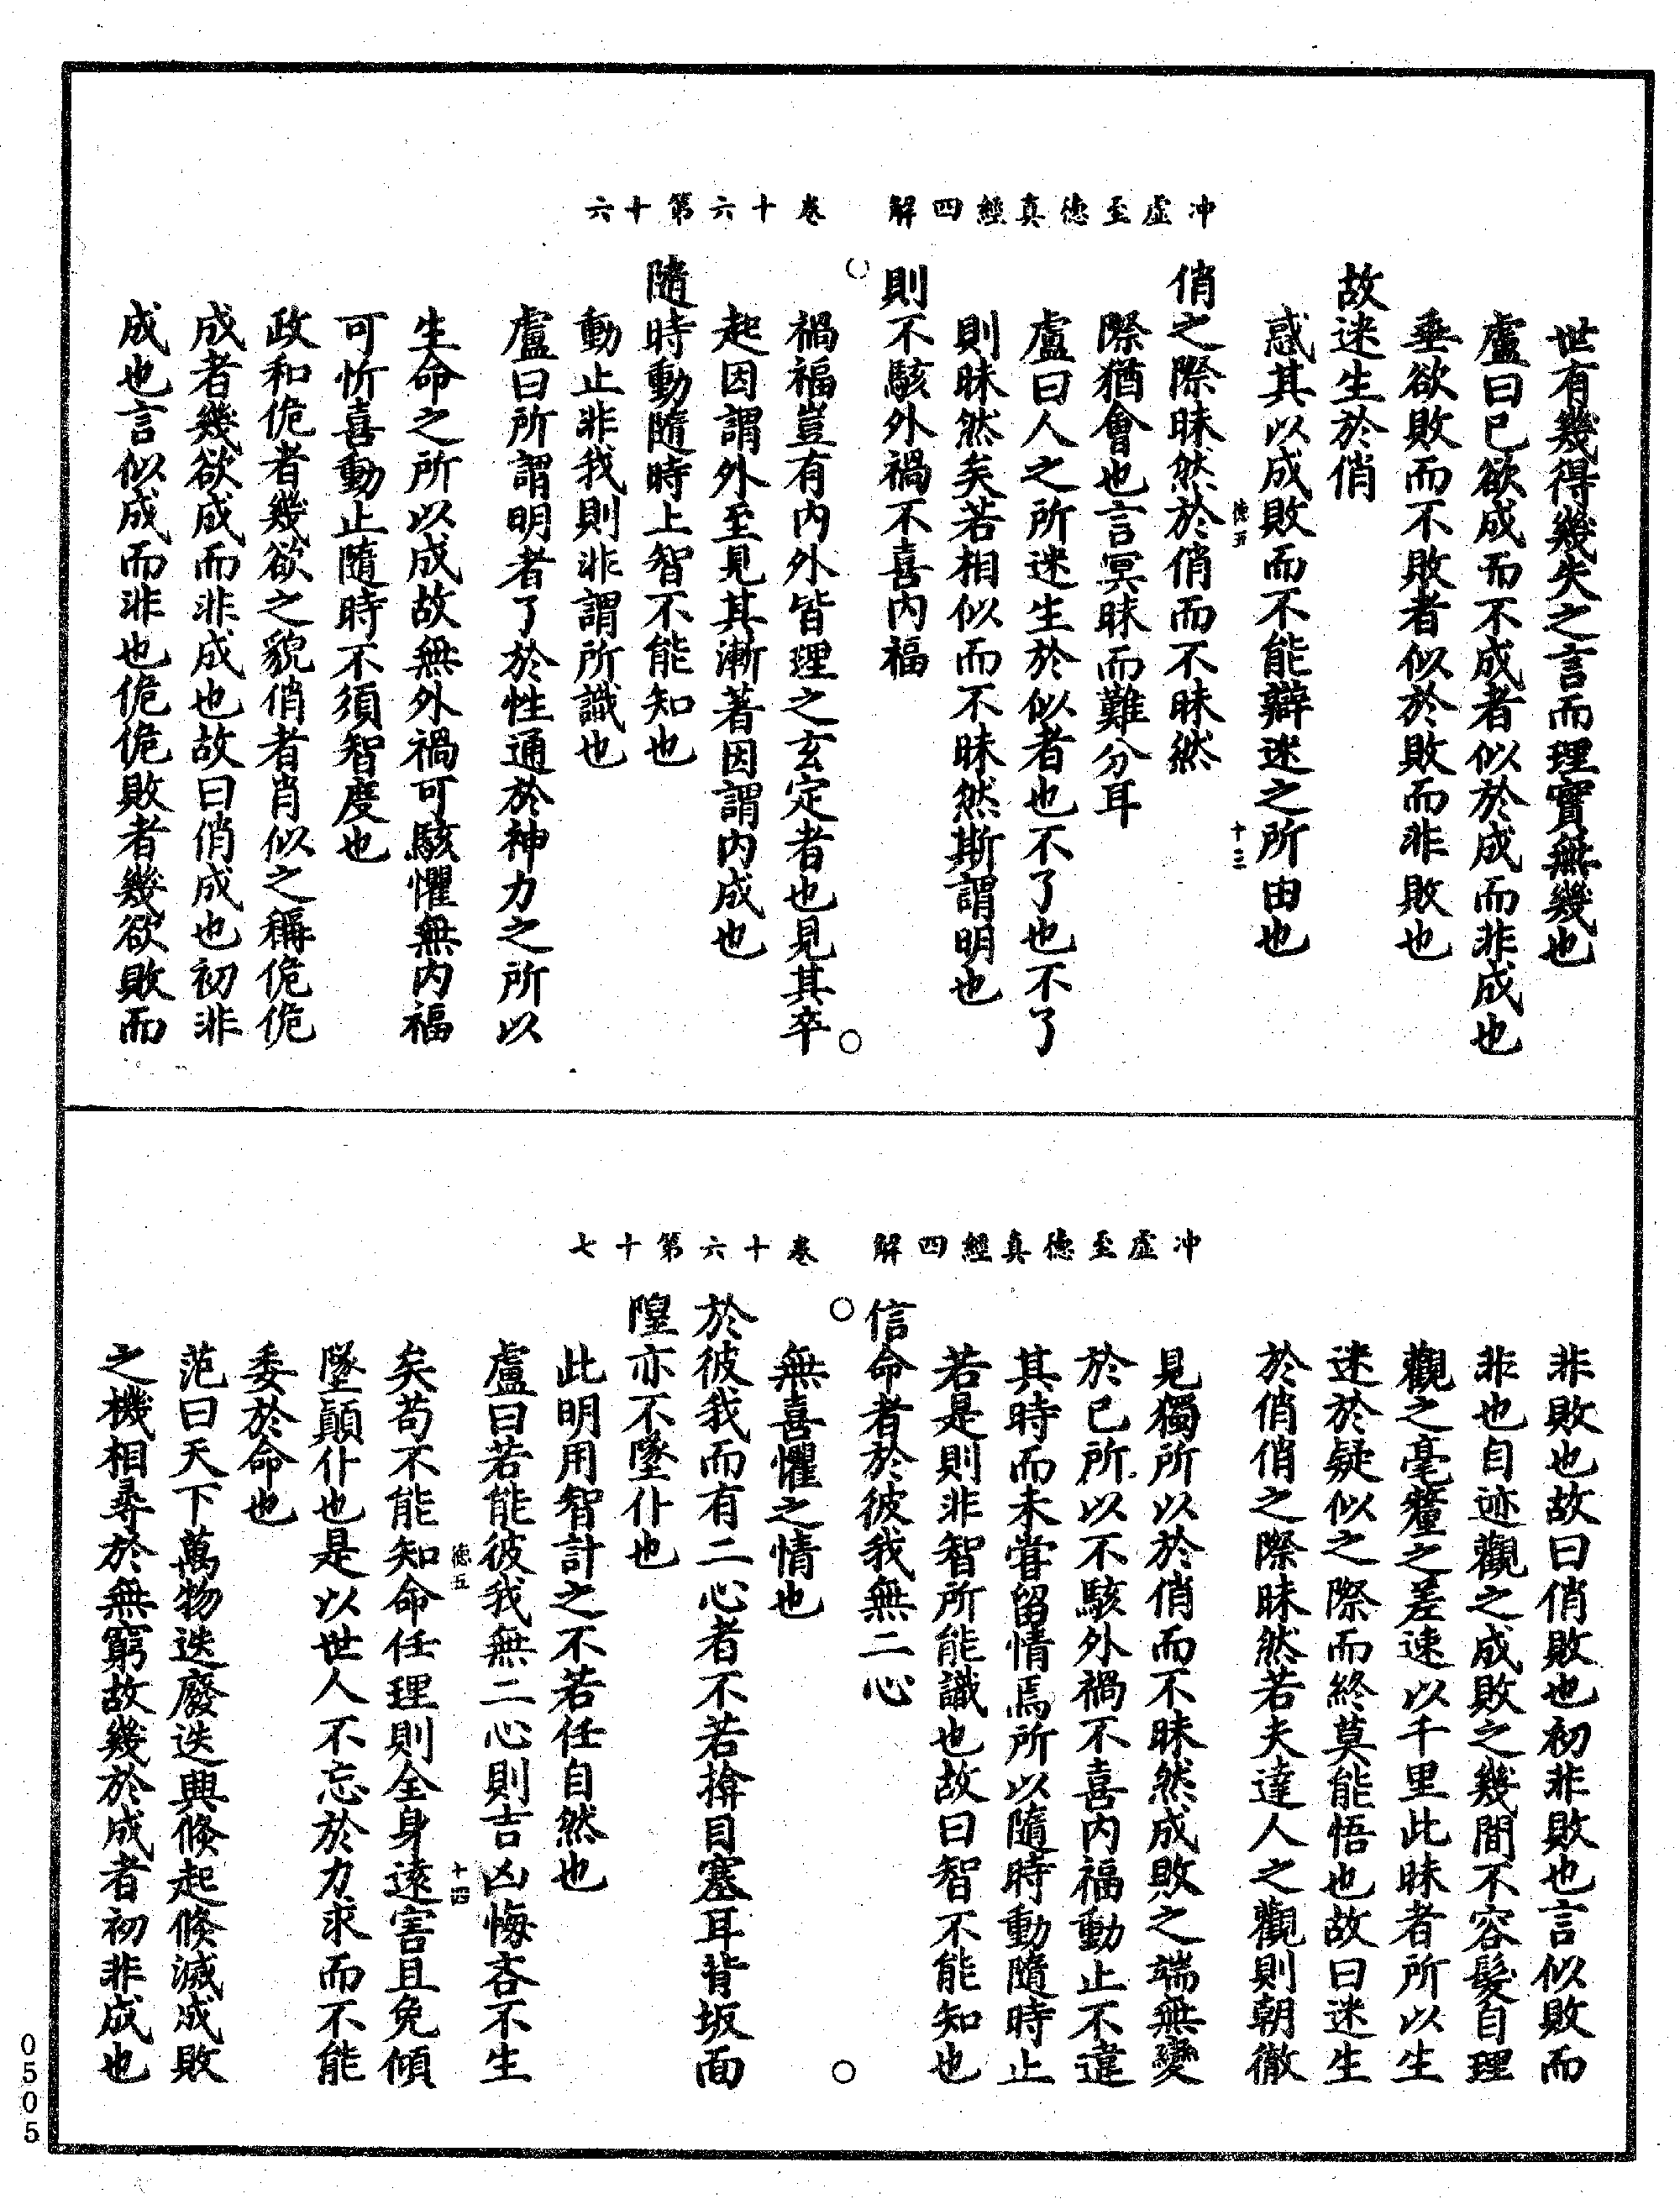 冲虛至德真經四解　卷十六第十六
世有幾得幾失之言而理實無幾也
盧曰已欲成而不成者似於成而非成也
垂欲敗而不敗者似於敗而非敗也
故迷生於俏
惑其以成敗而不能辯迷之所由也
德五　十三
俏之際昧然於俏而不昧然
際猶會也言冥昧而難分耳
盧曰人之所迷生於似者也不了也不了
則昧然矣若相似而不昧然斯謂明也
則不駭外禍不喜內福
禍福豈有內外皆理之玄定者也見其卒
起因謂外至見其漸著因謂內成也
隨時動隨時上智不能知也
動止非我則非謂所識也
盧曰所謂明者了於性通於神力之所以
生命之所以成故無外禍可駭懼無內福
可忻喜動止隨時不須智度也
政和佹者幾欲之貌俏者肖似之稱佹佹
成者幾欲成而非成也故曰俏成也初非
成也言似成而非也佹佹敗者幾欲敗而
冲虛至德真經四解　卷十六第十七
非敗也故曰俏敗也初非敗也言似敗而
非也自迹觀之成敗之幾間不容髮自理
觀之毫釐之差速以千里此昧者所以生
迷於疑似之際而終莫能悟也故曰迷生
於俏俏之際昧然若夫達人之觀則朝徹
見獨所以於俏而不昧然成敗之端無變
於已所以不駭外禍不喜內福動止不違
其時而未甞留情焉所以隨時動隨時止
若是則非智所能識也故曰智不能知也
信命者於彼我無二心
無喜懼之情也
於彼我而有二心者不若揜目塞耳背坂面
隍亦不墜仆也
此明用智計之不若任自然也
盧曰若能彼我無二心則吉凶悔吝不生
德五　十四
矣苟不能知命任理則全身遠害且免傾
墜顛仆也是以世人不忘於力求而不能
委於命也
范曰天下萬物迭廢迭興倏起倏滅成敗
之機相尋於無窮故幾於成者初非成也
0505